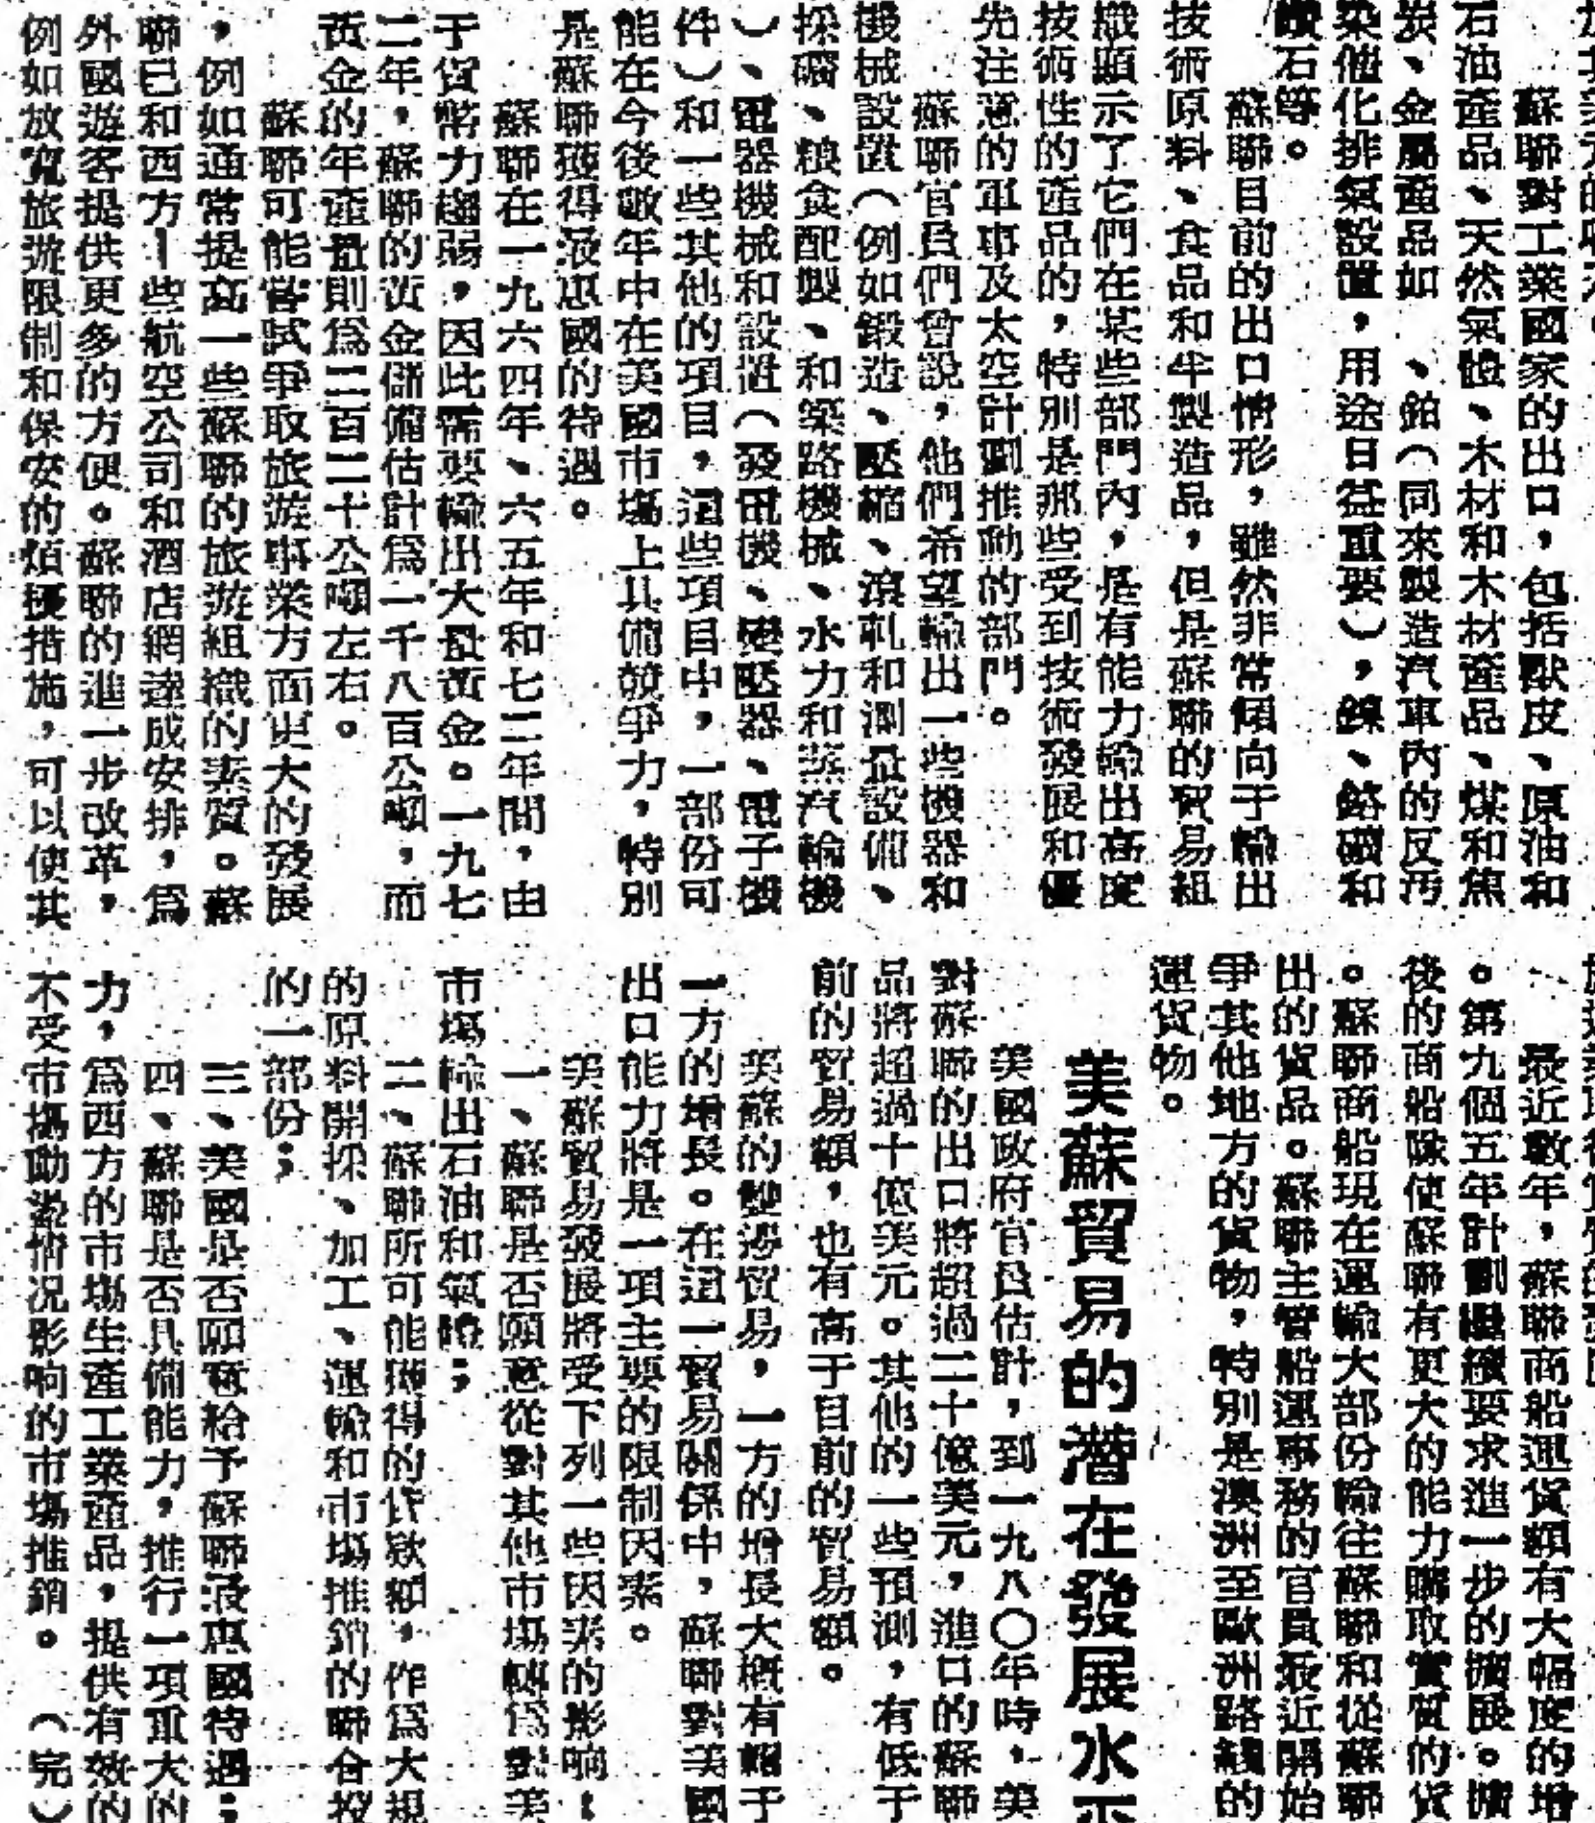 蘇聯對工業國家的出口，包括獸皮、原油和
石油產品、天然氣體、木材和木材產品、煤和焦
炭、金屬產品如　、鉑（同來製造汽車內的反汚
染他化排氣設置，用途日益重要），鎳、鉻礦和
鑽石等。
蘇聯目前的出口情形，雖然非常傾向于輸出
技術原料、食品和半製造品，但是蘇聯的貿易組
織顯示了它們在某些部門內，是有能力輸出高度
技術性的產品的，特別是那些受到技術發展和優
先注意的軍事及太空計劃推動的部門。
蘇聯官員們曾說，他們希望輸出一些機器和
機械設置（例如鍛造、壓縮、滾軋和測量設備、
採礦、粮食配製、和築路機械、水力和蒸汽輪機
）、電器機械和設置（發電機、變壓器、電子機
件）和一些其他的項目，這些項目中，一部份可
能在今後數年中在美國市場上具備競爭力，特別
是蘇聯獲得最惠國的待遇。
蘇聯在一九六四年、六五年和七二年間，由
于貨幣力趨弱，因此需要輸出大量黃金。一九七
二年，蘇聯的黃金儲備估計爲一千八百公噸，而
黃金的年產量則爲二百二十公噸左右。
蘇聯可能嘗試爭取旅遊事業方面更大的發展
，例如通常提高一些蘇聯的旅遊組織的素質。蘇
聯已和西方一些航空公司和酒店網達成安排，爲
外國遊客提供更多的方便。蘇聯的進一步改革，
例如放寬旅遊限制和保安的煩擾措施，可以使其
最近數年，蘇聯商船運貨額有大幅度的增
。第九個五年計劃繼續要求進一步的擴展。擴
後的商船隊使蘇聯有更大的能力賺取實質的貨
。蘇聯商船現在運輸大部份輸往蘇聯和從蘇聯
出的貨品。蘇聯主管船運事務的官員最近開始
爭其他地方的貨物，特別是澳洲至歐洲路綫的
運貨物。
美蘇貿易的潛在發展水平
美國政府官員估計，到一九八〇年時，美
對蘇聯的出口將超過二十億美元，進口的蘇聯
品將超過十億美元。其他的一些預測，有低于
前的貿易額，也有高于目前的貿易額。
美蘇的雙邊貿易，一方的增長大概有賴于
一方的增長。在這一貿易關係中，蘇聯對美國
出口能力將是一項主要的限制因素。
美蘇貿易發展將受下列一些因素的影响：
一、蘇聯是否願意從對其他市場轉爲對美
市場輸出石油和氣體；
二、蘇聯所可能獲得的貸欵額，作爲大規
的原料開採、加工、運輸和市場推銷的聯合投
的一部份；
三、美國是否願意給予蘇聯最惠國待遇；
四、蘇聯是否具備能力，推行一項重大的
力，爲西方的市場生產工業產品，提供有效的
不受市場動盪情況影响的市場推銷。　（完）